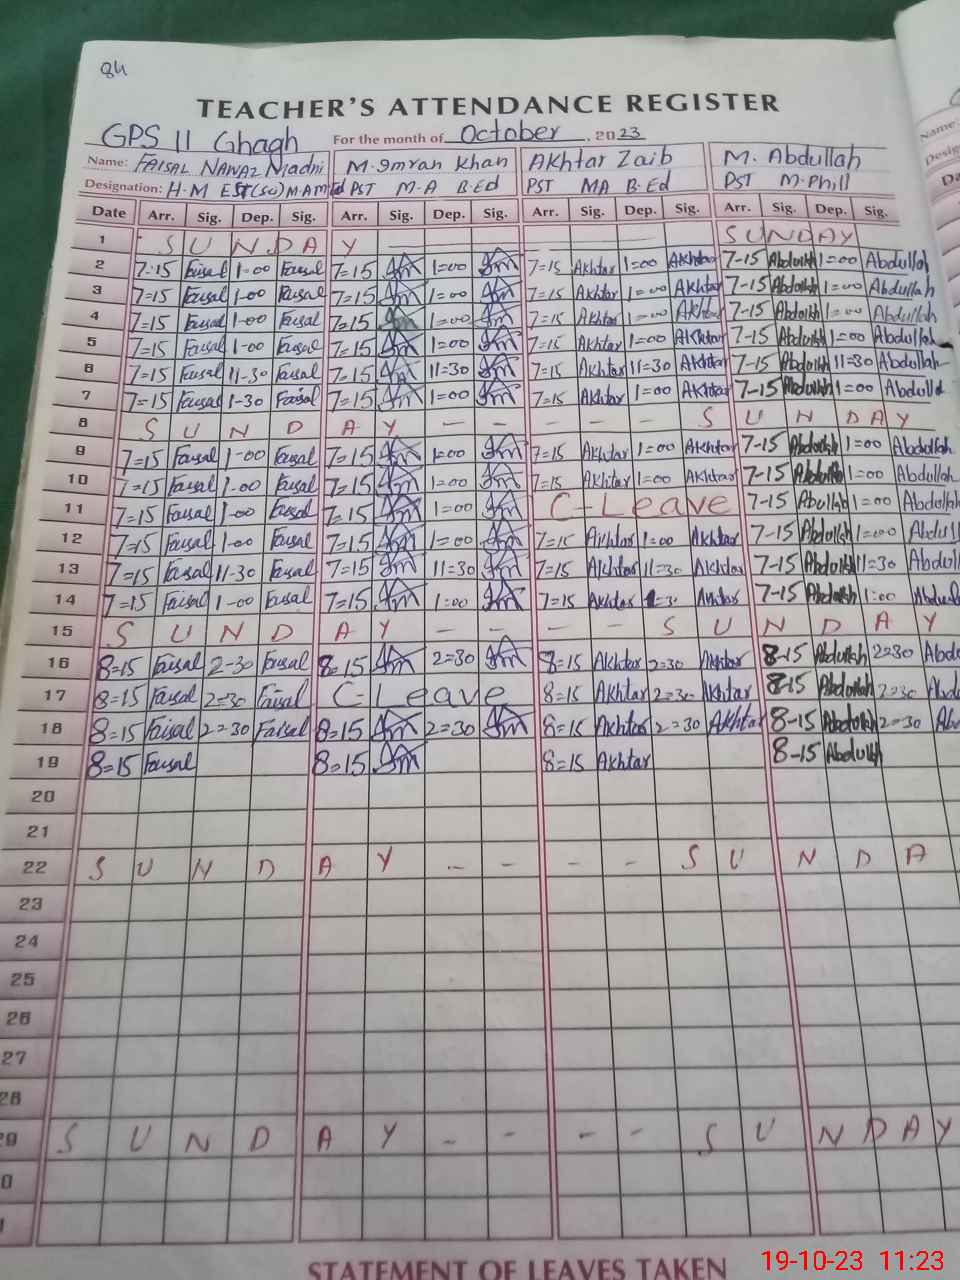 TEACHER'S ATTENDANCE REGISTER
GPS II Ghagh For the month of October, 2023
Name: FAISAL NAWAZ Niadni M. Imran Khan Akhtar Zaib M. Abdullah
Designation: H-M PST M-A B.Ed PST MA B-Ed PST M.Phill
Date Arr. Sig. Dep. Sig. Arr. Sig. Dep. Sig. Arr. Sig. Dep. Sig. Arr. Sig. Dep. Sig.
1 S U N D A Y SUNDAY
2 7-15 Faisal 1-00 Faisal 7=15 Im 1=00 Im 7=15 Akhtar 1=00 Akhtar 7-15 Abdullah 1=00 Abdullah
3 7=15 Faisal 1-00 Faisal 7=15 Im 1=00 Im 7=15 Akhtar 1=00 Akhtar 7-15 Abdullah 1=00 Abdullah
4 7=15 Faisal 1-00 Faisal 7=15 Im 1=00 Im 7=15 Akhtar 1=00 Akhtar 7-15 Abdullah 1=00 Abdullah
5 7=15 Faisal 1-00 Faisal 7=15 Im 1=00 Im 7=15 Akhtar 1=00 Akhtar 7-15 Abdullah 1=00 Abdullah
6 7=15 Faisal 11-30 Faisal 7=15 Im 11=30 Im 7=15 Akhtar 11=30 Akhtar 7-15 Abdullah 11=30 Abdullah
7 7=15 Faisal 1-30 Faisal 7=15 Im 1=00 Im 7=15 Akhtar 1=00 Akhtar 7-15 Abdullah 1=00 Abdulla
8 S U N D A Y - - - - - S U N D A Y
9 7=15 Faisal 1-00 Faisal 7=15 Im 1=00 Im 7=15 Akhtar 1=00 Akhtar 7-15 Abdullah 1=00 Abdullah
10 7=15 Faisal 1-00 Faisal 7=15 Im 1=00 Im 7=15 Akhtar 1=00 Akhtar 7-15 Abdullah 1=00 Abdullah
11 7=15 Faisal 1-00 Faisal 7=15 Im 1=00 Im C-Leave 7-15 Abullah 1=00 Abdullah
12 7=15 Faisal 1-00 Faisal 7=15 Im 1=00 Im 7=15 Akhtar 1=00 Akhtar 7-15 Abdullah 1=00 Abdull
13 7=15 Faisal 11-30 Faisal 7=15 Im 11=30 Im 7=15 Akhtar 11=30 Akhtar 7-15 Abdullah 11=30 Abdull
14 7=15 Faisal 1-00 Faisal 7=15 Im 1=00 Im 7=15 Akhtar Akhtar 7-15 Abdullah 1=00
15 S U N D A Y - - - - S U N D A Y
16 8=15 Faisal 2-30 Faisal 8=15 Im 2=30 Im 8=15 Akhtar 2=30 Akhtar 8-15 Abdullah 2=30 Abd
17 8=15 Faisal 2=30 Faisal C-Leave 8=15 Akhtar 2=30 Akhtar 8-15 Abdullah 2=30
18 8=15 Faisal 2=30 Faisal 8=15 Im 2=30 Im 8=15 Akhtar 2=30 Akhtar 8-15 Abdullah 2=30
19 8=15 Faisal 8=15 Im 8=15 Akhtar 8-15 Abdullah
20
21
22 S U N D A Y - - - - S U N D A
23
24
25
26
27
28
29 S U N D A Y - - - - S U N D A Y
0
1
STATEMENT OF LEAVES TAKEN
19-10-23 11:23